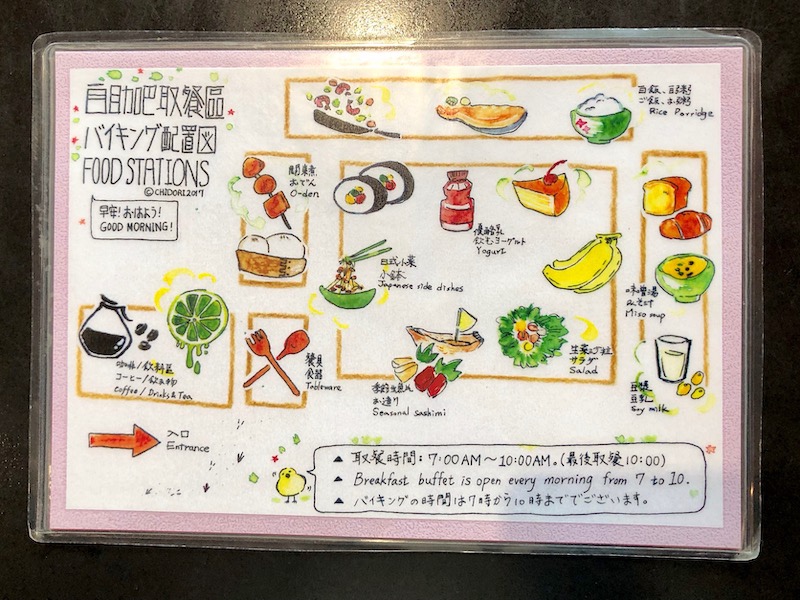 自助吧取餐區
バイキング配置図
FOOD STATIONS
©CHIDORI2017
早安！おはよう！
GOOD MORNING！
白飯、白粥
ご飯、お粥
Rice Porridge
關東煮
おでん
O-den
優酪乳
飲むヨーグルト
Yogurt
日式小菜
小鉢
Japanese side dishes
味噌湯
みそ汁
Miso soup
咖啡/飲料區
コーヒー/飲み物
Coffee/Drinks & Tea
餐具
食器
Tableware
季節生魚片
お造り
Seasonal sashimi
サラダ
Salad
豆漿
豆乳
Soy milk
入口
Entrance
▲ 取餐時間：7:00AM～10:00AM。(最後取餐10:00)
▲ Breakfast buffet is open every morning from 7 to 10.
▲ バイキングの時間は7時から10時まででございます。